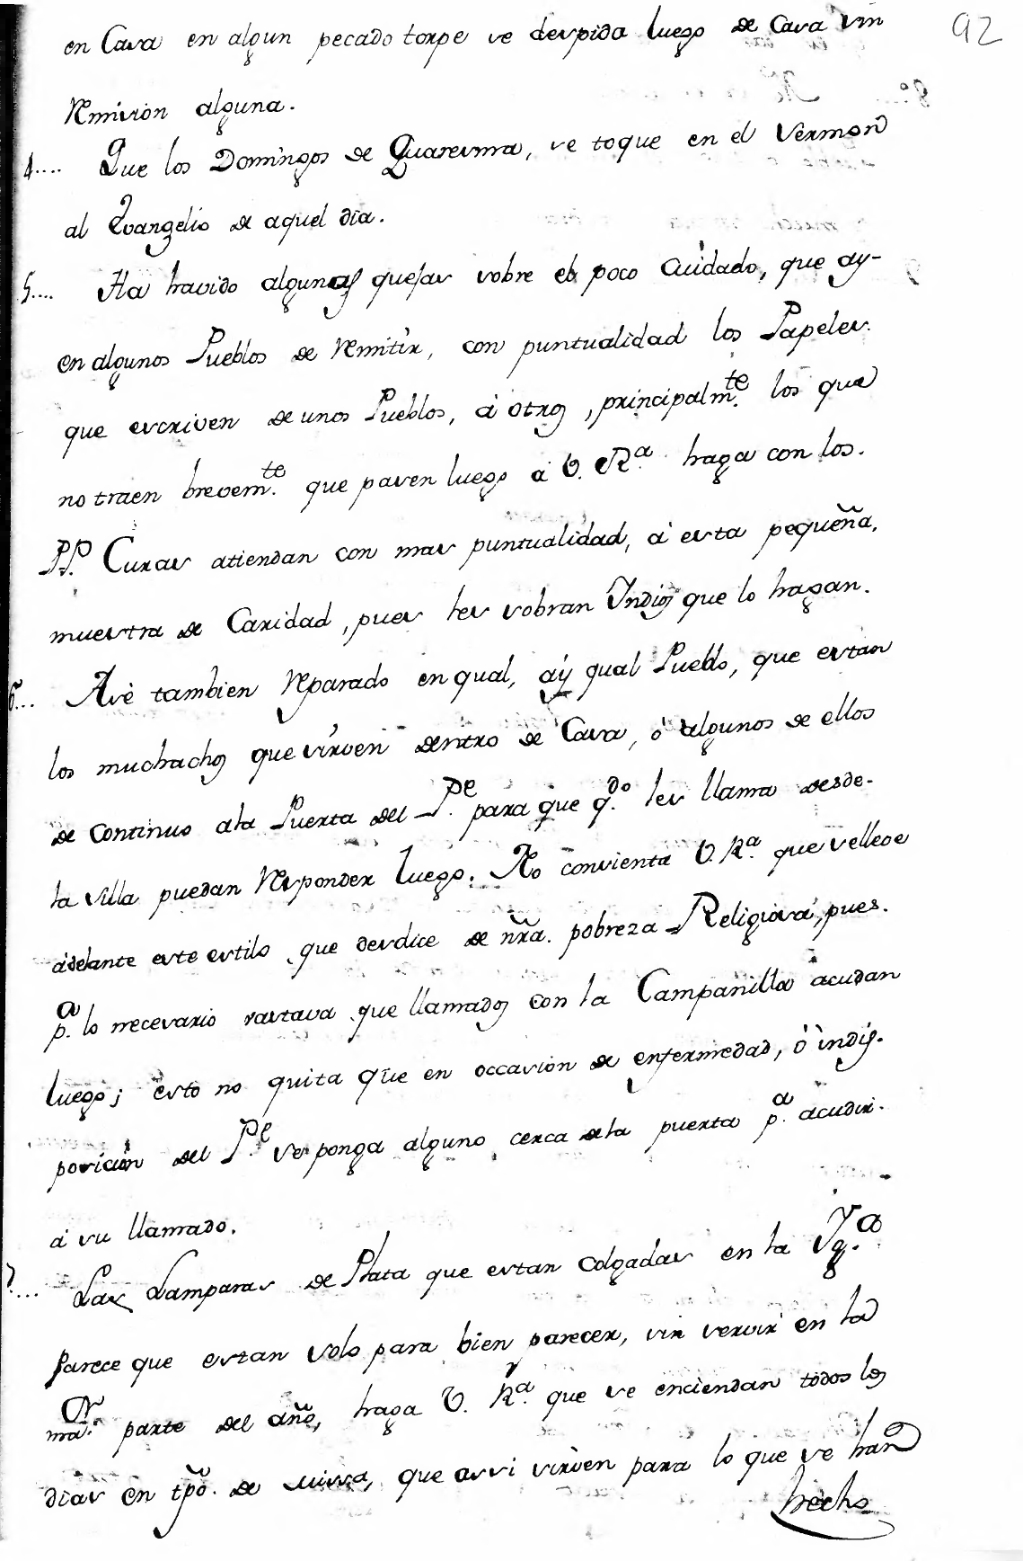 92
en Casa en algun pecado torpe se despida luego de Casa sin
Remision alguna.
4.... Que los Domingos de Quaresma, se toque en el Sermon
al Evangelio de aquel dia.
5.... Ha havido algunas quejas sobre el poco Cuidado, que ay-
en algunos Pueblos de Remitir, con puntualidad los Papeles.
que escriven de unos Pueblos, á otros, principalm.te los que
no traen brevem.te que pasen luego á V. R.a haga con los.
PP. Curas atiendan con mas puntualidad, á esta pequeña.
muestra de Caridad, pues les sobran Yndios que lo hagan.
6... Ase tambien Reparado en qual, aý qual Pueblo, que estan
los muchachos que sirven dentro de Casa, ó algunos de ellos
de continuo ala Puerta del P.e para que q.do les llama desde-
la silla puedan Responder luego. No convienta V. R.a que se lleve
adelante este estilo, que desdice de ñra. pobreza Religiosa, pues.
p.a lo necesario vastava que llamados con la Campanilla acudan
luego; esto no quita que en occasion de enfermedad, ó indis.
posicion del P.e se ponga alguno cerca dela puerta p.a acudir.
á su llamado.
7.... Las Lamparas de Plata que estan colgadas en la Yg.a
parece que estan solo para bien parecer, sin servir en la
ma.r parte del año, haga V. R.a que se enciendan todos los
dias en tpõ. de missa, que assi sirven para lo que se han
hecho